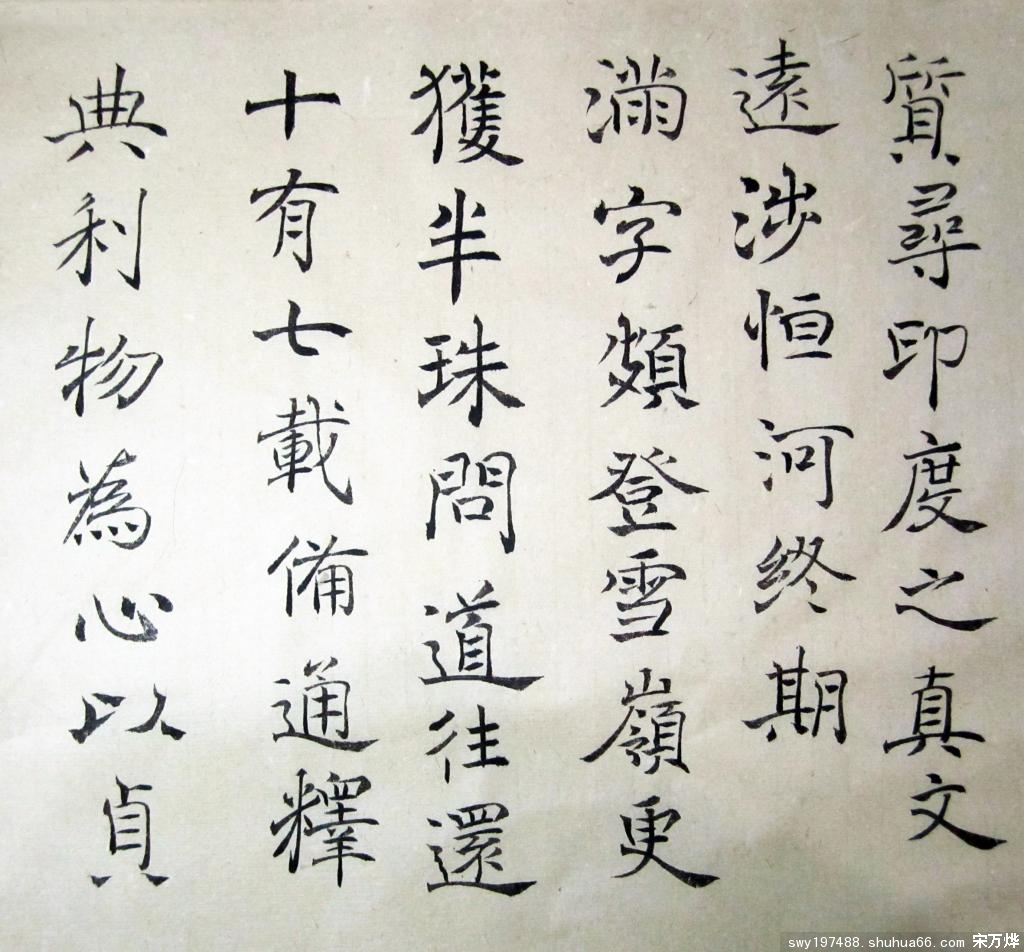 質尋印度之真文
遠涉恒河終期
滿字頻登雪嶺更
獲半珠問道往還
十有七載備通釋
典利物為心以貞
swy197488.shuhua66.com 宋万烨